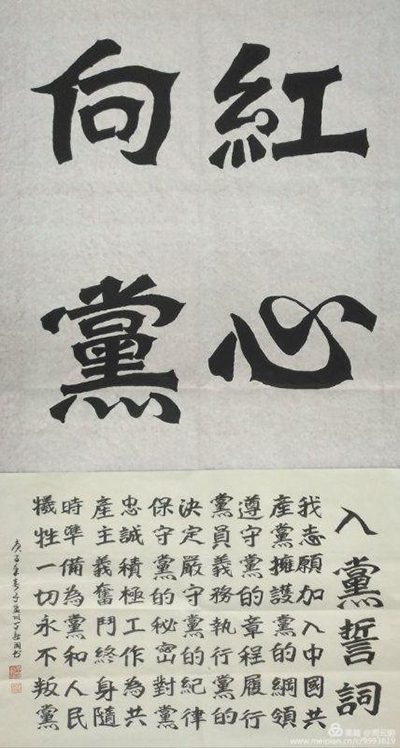 紅心
向黨
入黨誓詞
我志願加入中國共
產黨擁護黨的綱領
遵守黨的章程履行
黨員義務執行黨的
決定嚴守黨的紀律
保守黨的秘密對黨
忠誠積極工作為共
產主義奮鬥終身隨
時準備為黨和人民
犧牲一切永不叛黨
庚子年春
美篇
www.meipian.cn/c/9993619